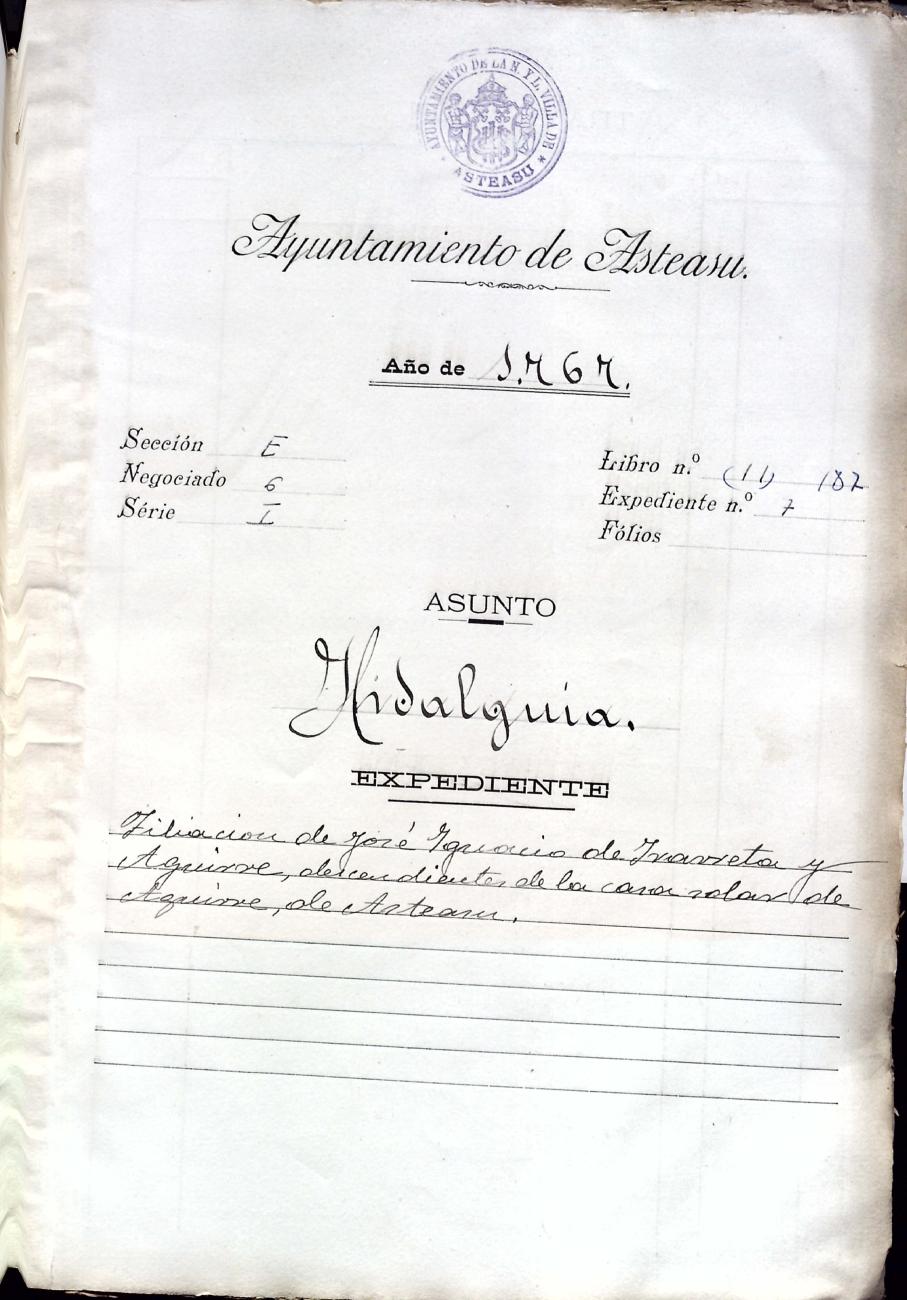 AYUNTAMIENTO DE LA N. Y L. VILLA DE
* ASTEASU *
Ayuntamiento de Asteasu.
Año de 1.767.
Sección E
Negociado 6
Série I
Libro n.º (11) 187
Expediente n.º 7
Fólios
ASUNTO
Hidalguia.
EXPEDIENTE
Filiacion de José Ignacio de Iravreta y
Aguirre, descendientes de la casa solar de
Aguirre, de Asteasu.